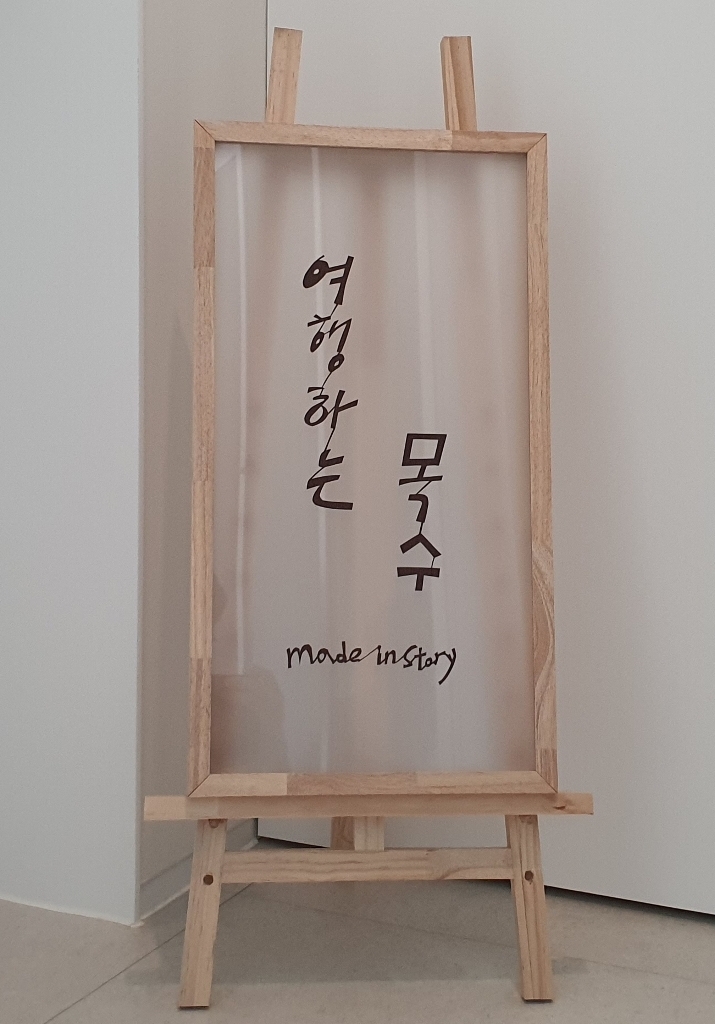 여행하는
목수
made in story